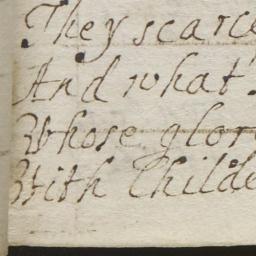 They scarce
And what
Whose glor
With Childe